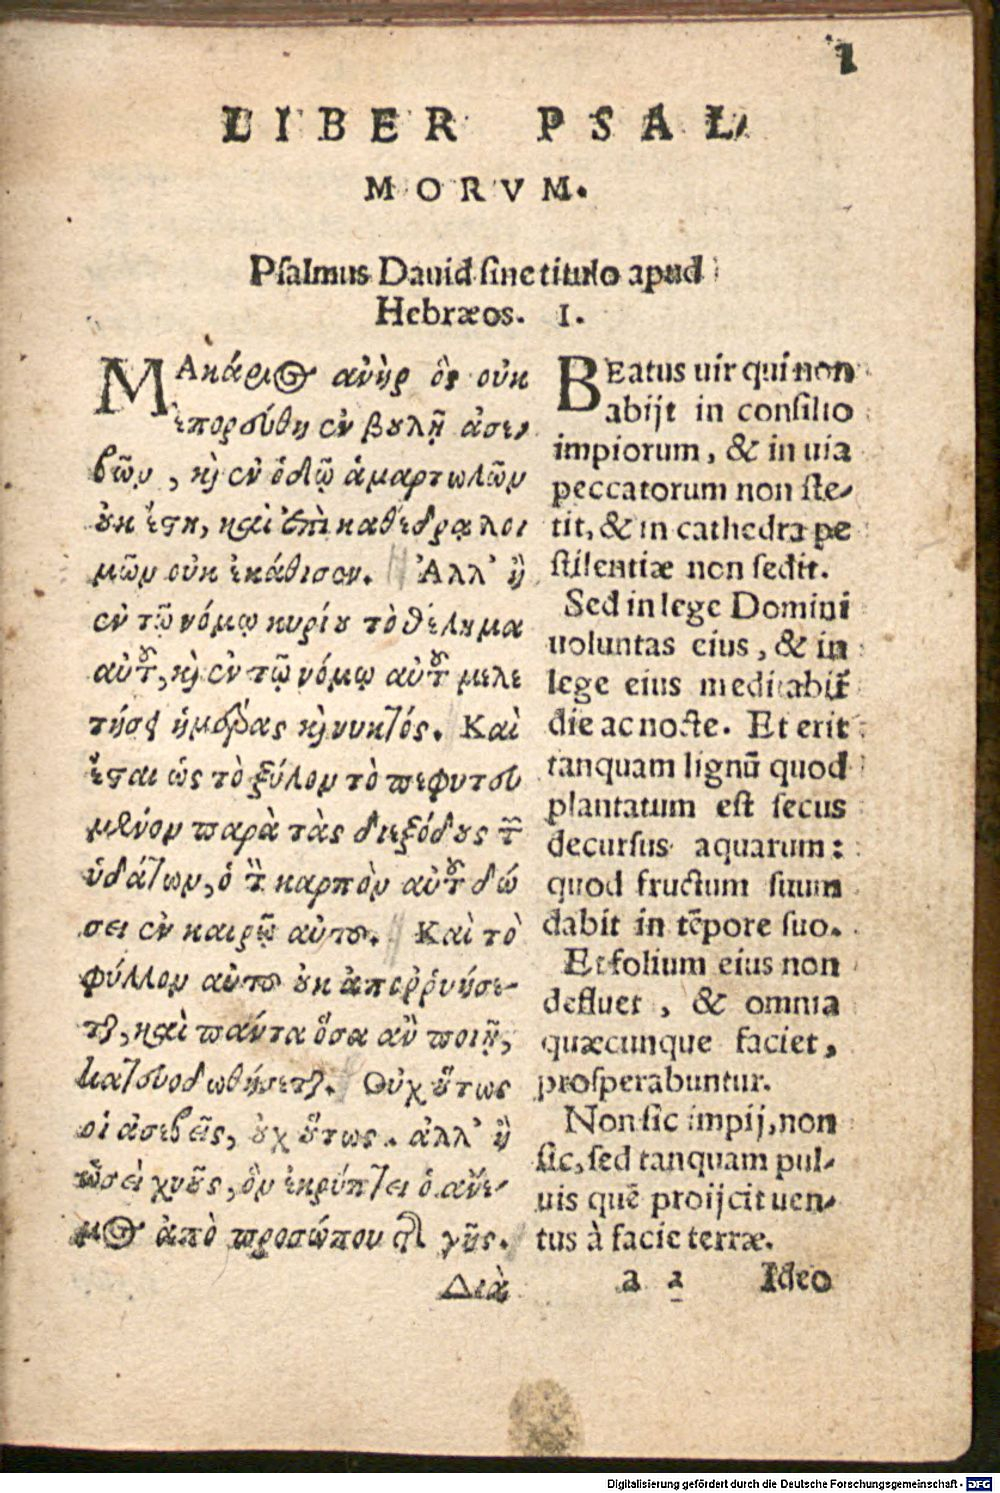 1
LIBER PSAL
MORVM.
Psalmus Dauid sine titulo apud
Hebræos. I.
ΜΑκάριος ἀνὴρ ὃς οὐκ
ἐπορεύθη ἐν βουλῇ ἀσε-
βῶν, καὶ ἐν ὁδῷ ἁμαρτωλῶν
οὐκ ἔστη, καὶ ἐπὶ καθέδρᾳ λοι
μῶν οὐκ ἐκάθισεν. Ἀλλ' ἢ
ἐν τῷ νόμῳ κυρίου τὸ θέλημα
αὐτοῦ, καὶ ἐν τῷ νόμῳ αὐτοῦ μελε
τήσει ἡμέρας καὶ νυκτός. Καὶ
ἔσται ὡς τὸ ξύλον τὸ πεφυτευ
μένον παρὰ τὰς διεξόδους τῶν
ὑδάτων, ὃ τὸν καρπὸν αὐτοῦ δώ
σει ἐν καιρῷ αὐτοῦ. Καὶ τὸ
φύλλον αὐτοῦ οὐκ ἀπορρυήσε-
ται, καὶ πάντα ὅσα ἂν ποιῇ,
κατευοδωθήσεται. Οὐχ οὕτως
οἱ ἀσεβεῖς, οὐχ οὕτως. ἀλλ' ἢ
ὡσεὶ χνοῦς, ὃν ἐκρύπτει ὁ ἄνε-
μος ἀπὸ προσώπου τῆς γῆς.
Διὰ
BEatus uir qui non
abijt in consilio
impiorum, & in uia
peccatorum non ste-
tit, & in cathedra pe
stilentiæ non sedit.
Sed in lege Domini
uoluntas eius, & in
lege eius meditabit̃
die ac nocte. Et erit
tanquam lignũ quod
plantatum est secus
decursus aquarum:
quod fructum suum
dabit in tẽpore suo.
Et folium eius non
defluet, & omnia
quæcunque faciet,
prosperabuntur.
Non sic impij, non
sic, sed tanquam pul-
uis quẽ proijcit uen-
tus à facie terræ.
a 2 Ideo
Digitalisierung gefördert durch die Deutsche Forschungsgemeinschaft - DFG